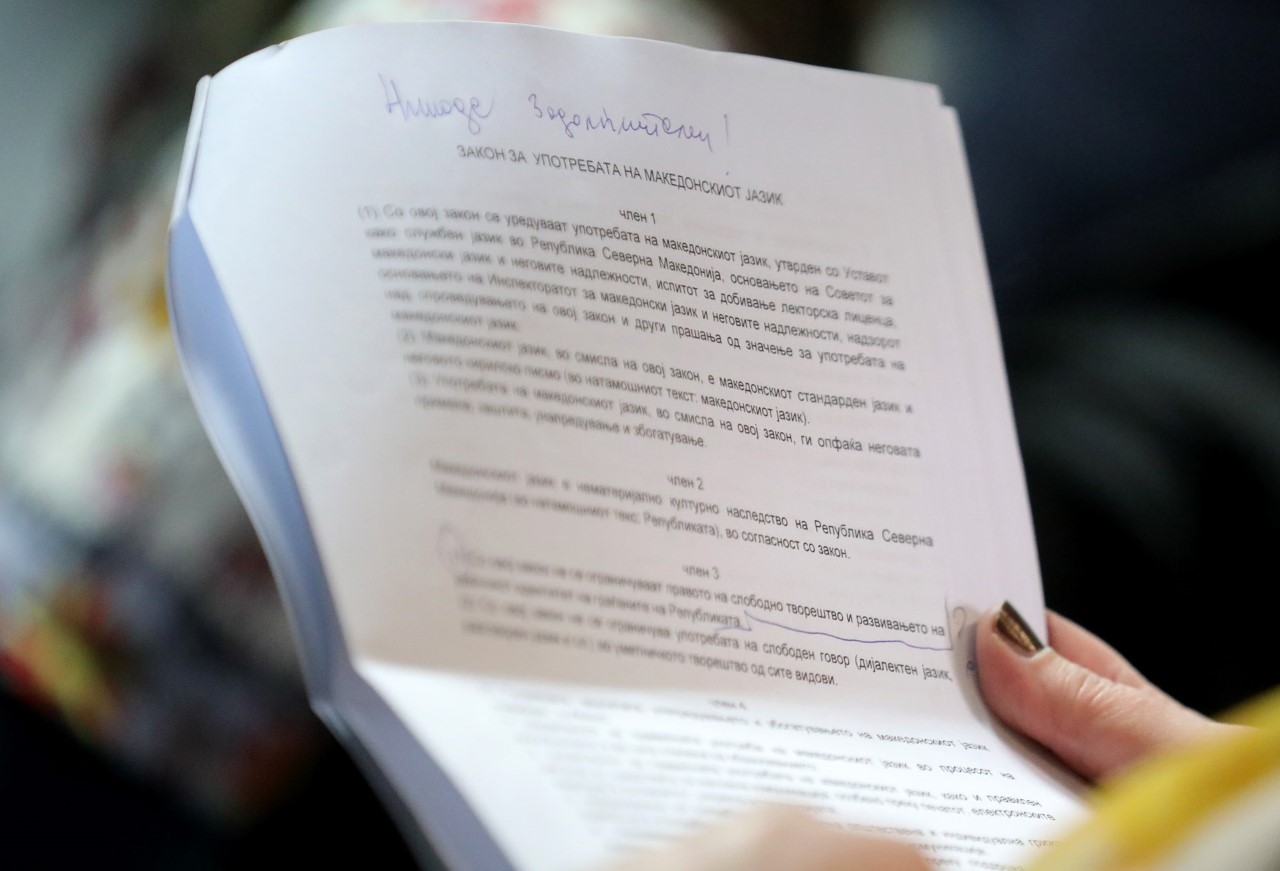 Никаде Задолжителен!
ЗАКОН ЗА УПОТРЕБАТА НА МАКЕДОНСКИОТ ЈАЗИК
член 1
(1) Со овој закон се уредуваат употребата на македонскиот јазик, утврден со Уставот
како службен јазик во Република Северна Македонија, основањето на Советот за
македонски јазик и неговите надлежности, испитот за добивање лекторска лиценца,
основањето на Инспекторатот за македонски јазик и неговите надлежности, надзорот
над спроведувањето на овој закон и други прашања од значење за употребата на
македонскиот јазик.
(2) Македонскиот јазик, во смисла на овој закон, е македонскиот стандарден јазик и
неговото кирилско писмо (во натамошниот текст: македонскиот јазик).
(3) Употребата на македонскиот јазик, во смисла на овој закон, ги опфаќа неговата
примена, заштита, унапредување и збогатување.
член 2
Македонскиот јазик е нематеријално културно наследство на Република Северна
Македонија (во натамошниот текс: Републиката), во согласност со закон.
член 3
Со овој закон не се ограничуваат правото на слободно творештво и развивањето на
идентитет на граѓаните на Републиката.
(2) Со овој закон не се ограничува употребата на слободен говор (дијалектен јазик,
јазик и сл.) во уметничкото творештво од сите видови.
член 4
и збогатувањето на македонскиот јазик
на македонскиот јазик во процесот на
на македонскиот јазик, како и правилен
преку печатот, електронските
и индивидуална